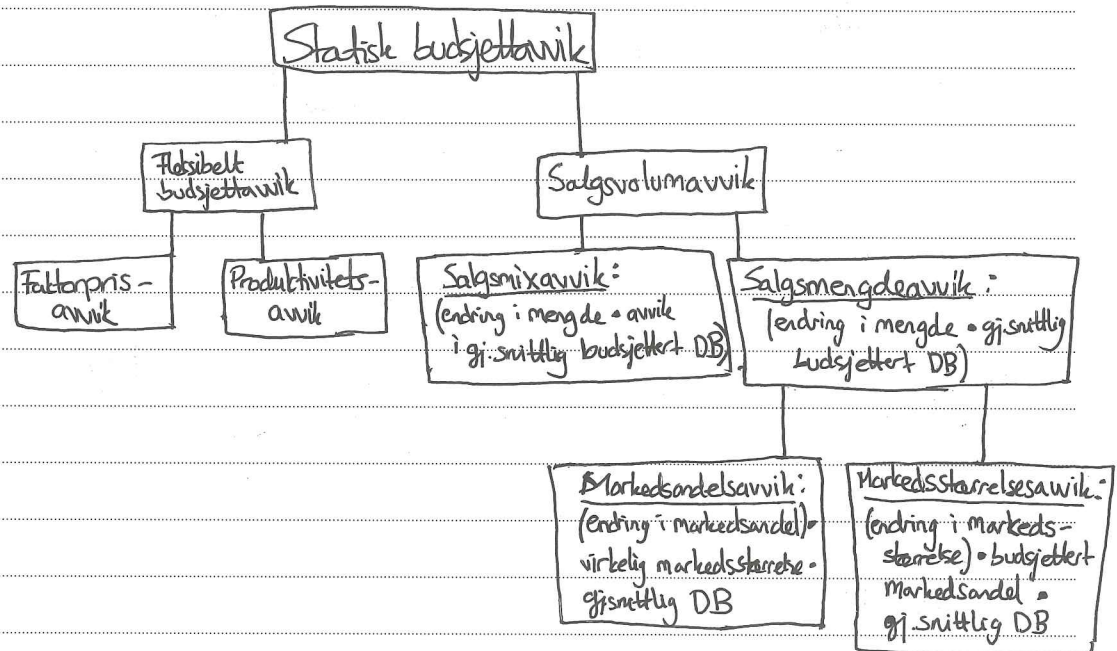 Statisk budsjettavvik
Fleksibelt
budsjettavvik
Salgsvolumavvik
Faktorpris-
avvik
Produktivitets-
avvik
Salgsmixavvik:
(endring i mengde • avvik
i gj.snittlig budsjettert DB)
Salgsmengdeavvik:
(endring i mengde • gj.snittlig
budsjettert DB)
Markedsandelsavvik:
(endring i markedsandel) •
virkelig markedsstørrelse •
gj.snittlig DB
Markedsstørrelsesavvik:
(endring i markeds-
størrelse) • budsjettert
markedsandel •
gj.snittlig DB